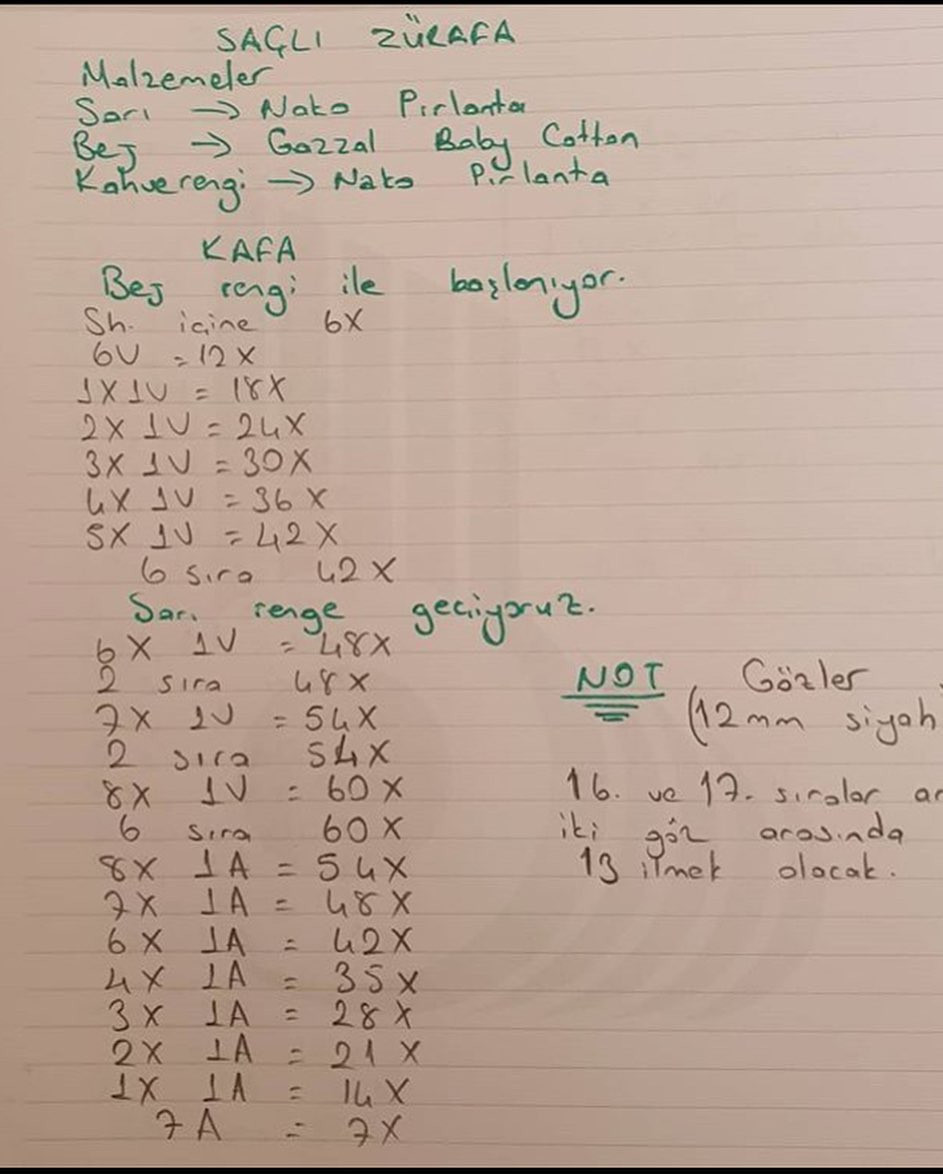 SAÇLI ZÜRAFA
Malzemeler
Sarı → Nako Pırlanta
Bej → Gazzal Baby Cotton
Kahverengi → Nako Pırlanta
KAFA
Bej rengi ile başlanıyor.
Sh. içine 6X
6V = 12X
1X 1V = 18X
2X 1V = 24X
3X 1V = 30X
4X 1V = 36X
5X 1V = 42X
6 sıra 42X
Sarı renge geçiyoruz.
6X 1V = 48X
2 sıra 48X
7X 1V = 54X
2 sıra 54X
8X 1V = 60X
6 sıra 60X
8X 1A = 54X
7X 1A = 48X
6X 1A = 42X
4X 1A = 35X
3X 1A = 28X
2X 1A = 21X
1X 1A = 14X
7A = 7X
NOT Gözler
(12mm siyah
16. ve 17. sıralar
iki göz arasında
13 ilmek olacak.